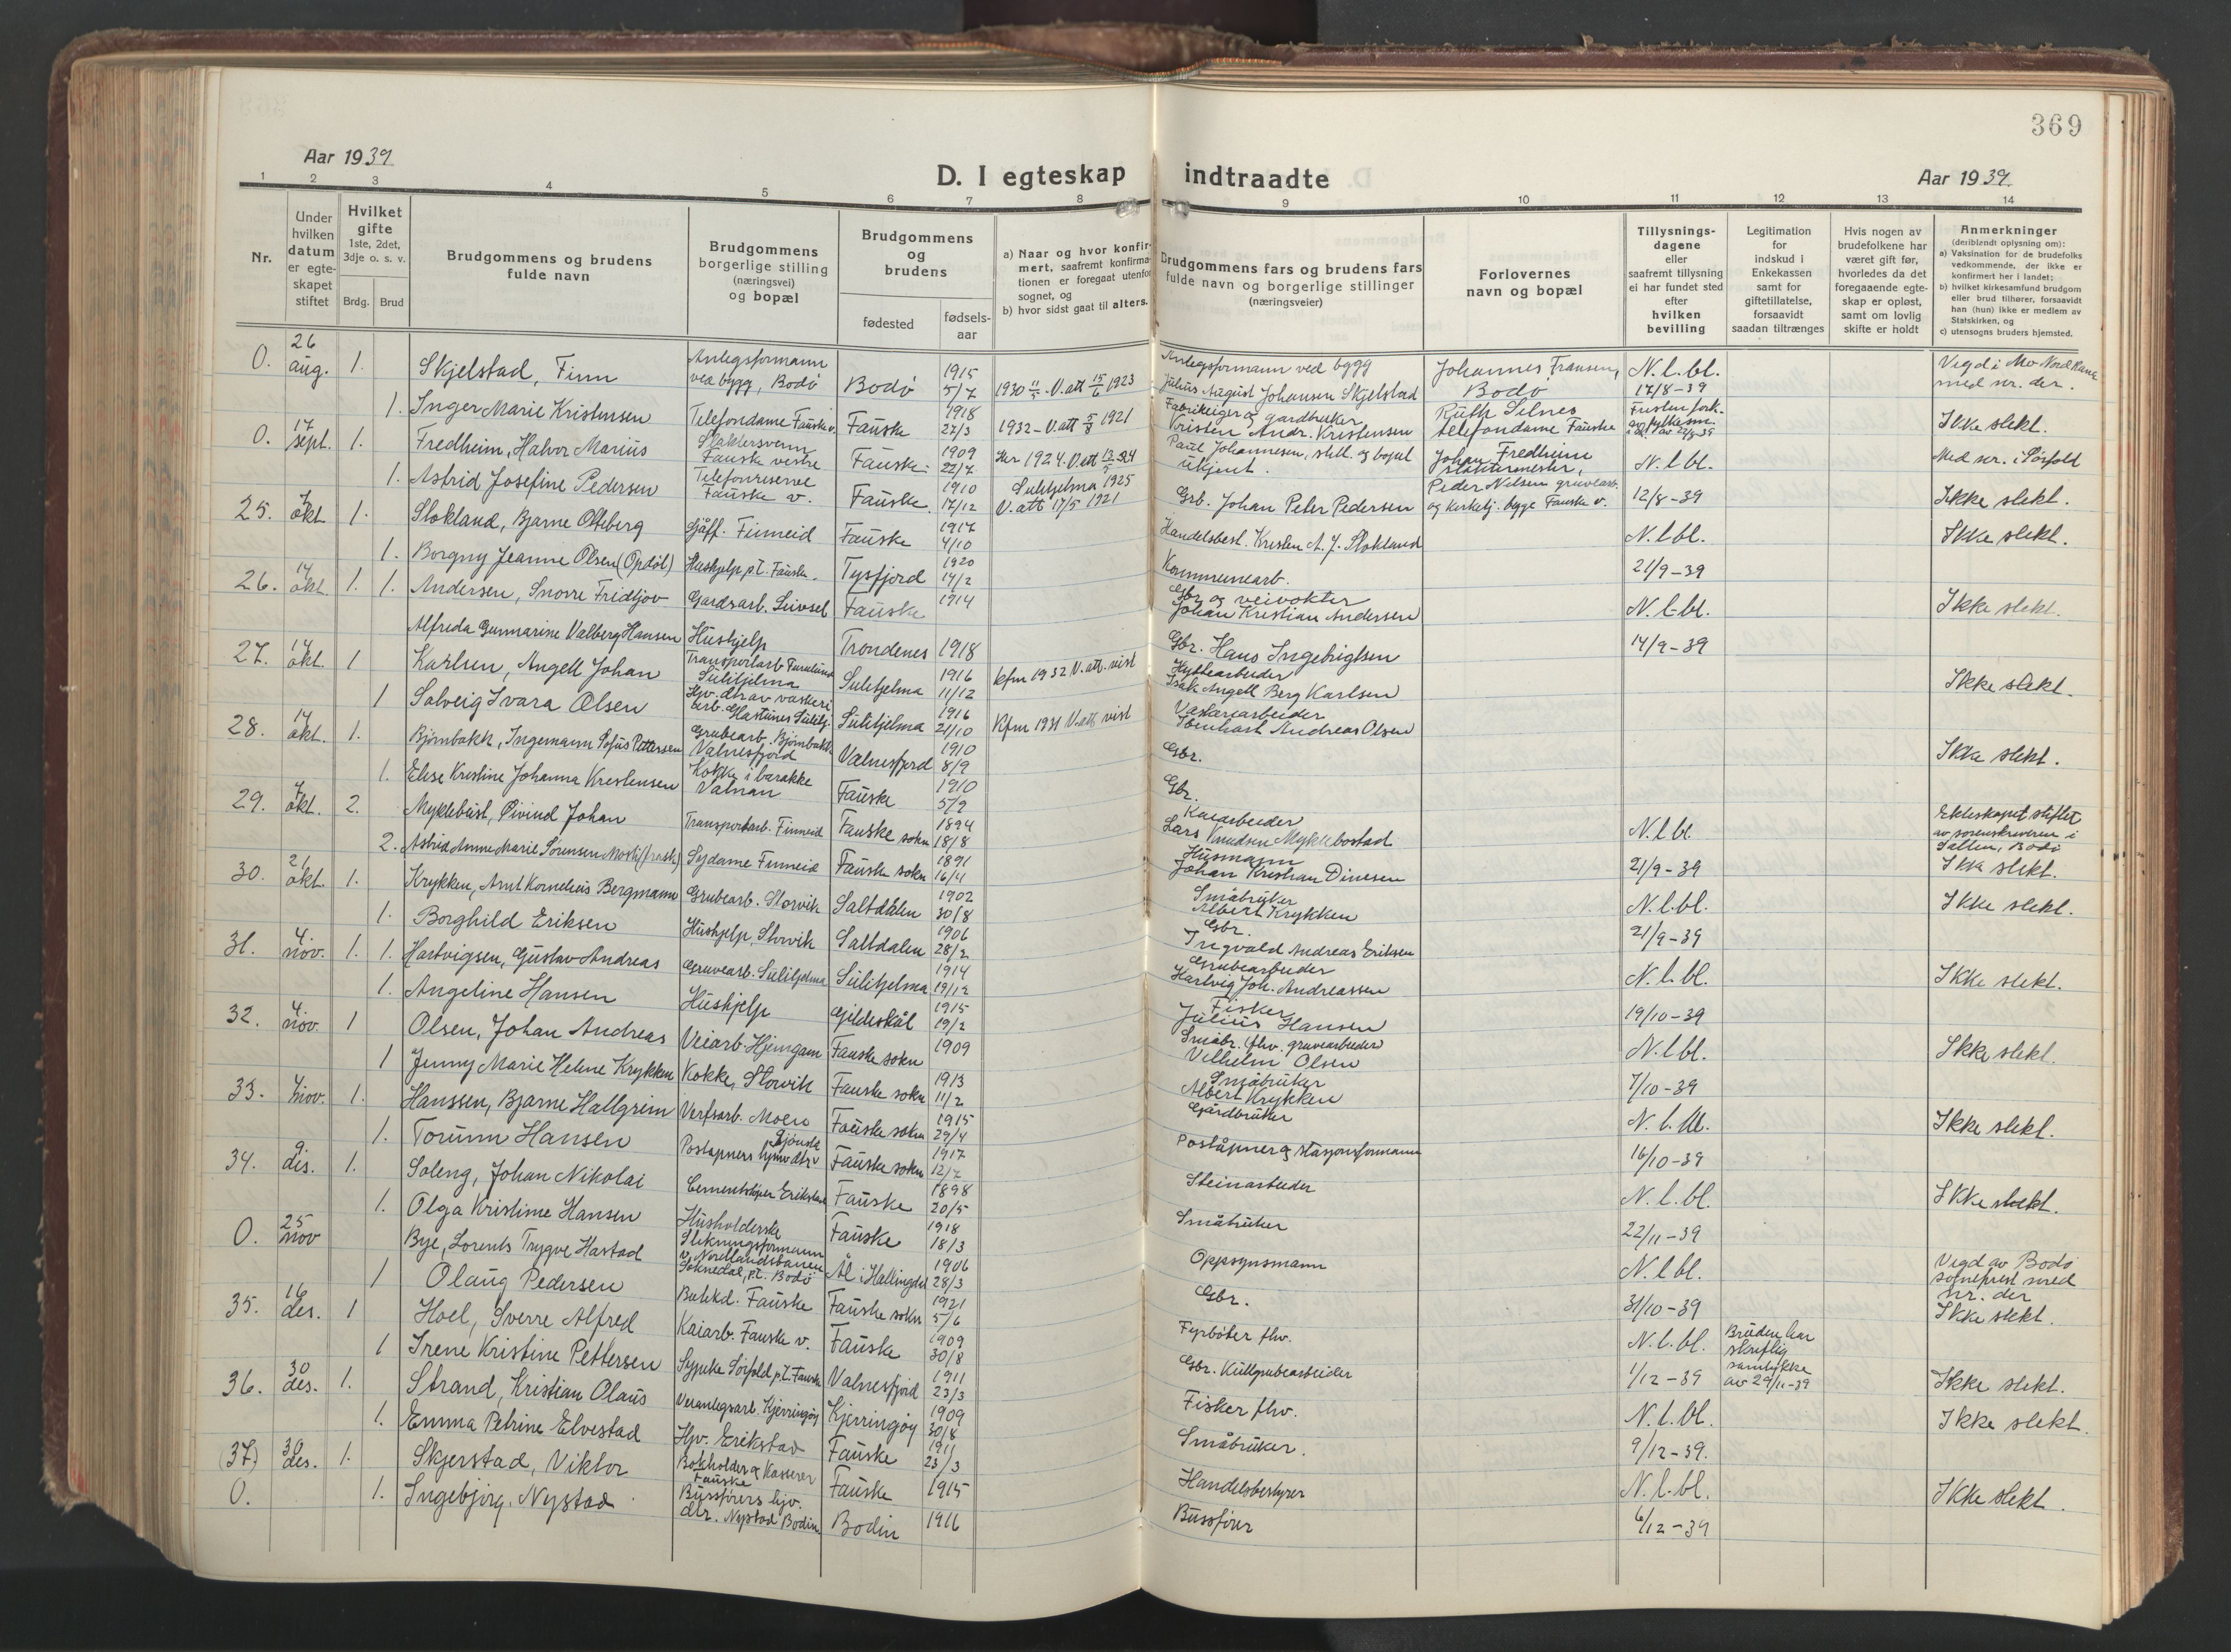 369
Aar 1939
D. I egteskap
indtraadte
Aar 1939.
1 2 3 4 5 6 7 8 9 10 11 12 13 14
Nr.
Under hvilken datum er egte-skapet stiftet
Hvilket gifte
1ste, 2det, 3dje o. s. v.
Brdg. Brud
Brudgommens og brudens fulde navn
Brudgommens borgerlige stilling (næringsvei) og bopæl
Brudgommens og brudens
fødested
fødsels-aar
a) Naar og hvor konfir-mert, saafremt konfirma-tionen er foregaat utenfor sognet, og
b) hvor sidst gaat til alters.
Brudgommens fars og brudens fars fulde navn og borgerlige stillinger (næringsveier)
Forlovernes navn og bopæl
Tillysnings-dagene eller saafremt tillysning ei har fundet sted efter hvilken bevilling
Legitimation for indskud i Enkekassen samt for giftetillatelse, forsaavidt saadan tiltrænges
Hvis nogen av brudefolkene har været gift før, hvorledes da det foregaaende egte-skap er opløst, samt om lovlig skifte er holdt
Anmerkninger
(deriblandt oplysning om):
a) Vaksination for de brudefolks vedkommende, der ikke er konfirmert her i landet;
b) hvilket kirkesamfund brudgom eller brud tilhører, forsaavidt han (hun) ikke er medlem av Statskirken, og
c) utensogns bruders hjemsted.
0. 26 aug. 1. Skjelstad, Finn Anlegsformann ved bygg, Bodø Bodø 1915 5/7 1930 11/5 - V. att 15/6 1923 Anlegsformann ved bygg Julius August Johansen Skjelstad Johannes Fransen, Bodø N. l. bl. 17/8-39 Vigd i Mo Nord Rana med nr. der.
1. Inger Marie Kristensen Telefondame Fauske v. Fauske 1918 27/3 1932 - V. att 5/8 1921 Fabrikeier og gardbruker Kristen Andr. Kristensen Ruth Selnes telefondame Fauske Fristen fork. av fylkesm. Ikke slekt.
0. 17 sept. 1. Fredheim, Halvor Marius Slaktersvenn Fauske vestre Fauske 1909 22/7 Her 1924. V. att Paul Johannesen, still. og bopel ukjent. Johan Fredheim slaktermester, N. l. bl. Med nr. i Sørfold
1. Astrid Josefine Pedersen Telefonreserve Fauske v. Fauske 1910 17/12 Sulitjelma 1925 V. att 17/5 1921 Grb. Johan Peter Pedersen Peder Nilsen gruvearb. og kirketj. begge Fauske v. 12/8-39 Ikke slekt.
25. 7 okt 1. Stokland, Bjarne Olteberg Sjåff. Finneid Fauske 1917 4/10 Handelsbest. Kristen A. J. Stokland N. l. bl. Ikke slekt.
1. Borgny Jeanne Olsen (Opdøl) Hushjelp p.t. Fauske. Tysfjord 1920 14/2 Kommunearb. 21/9-39
26. 14 okt. 1. 1. Andersen, Snorre Fridtjov Gardsarb. Leivset Fauske 1914 Gbr og veivokter Johan Kristian Andersen N. l. bl. Ikke slekt.
Alfreda Gunnarine Valberg Hansen Hushjelp Trondenes 1918 Gbr. Hans Ingebrigtsen 14/9-39
27. 14 okt. 1 Karlsen, Angell Johan Transportarb Furulund Sulitjelma Sulitjelma 1916 11/12 kfm 1932 V. att. vist Hyttearbeider Isak Angell Berg Karlsen Ikke slekt.
1 Solveig Ivara Olsen Hjv. dtr av vaskeri arb. Sulitjelma 1916 21/10 Kfm 1931 V. att. vist Vaskeriarbeider Andreas Olsen
28. 14 okt. 1 Bjørnbakk, Ingemann Sofus Pettersen Grubearb. Bjørnbakk Valnesfjord Valnesfjord 1910 8/9 Gbr. Ikke slekt.
1. Elise Kristine Johanna Kristensen Kokke i barakke Valnan Fauske 1910 5/9 Gbr.
29. 7 okt. 2. Myklebust, Øivind Johan Transportarb. Finneid Fauske sokn 1894 18/8 Kaiarbeider Lars Knudsen Myklebostad N. l. bl. Ekteskapet stiftet av sorenskriveren i Salten, Bodø
2. Astrid Anne Marie Sørensen Sydame Finneid Fauske sokn 1891 16/4 Husmann Johan Kristian Dinesen 21/9-39 Ikke slekt.
30. 21 okt. 1. Krykken, Arnt Kornelius Bergmann Grubearb. Storvik Saltdalen 1902 30/8 Småbruker Albert Krykken N. l. bl. Ikke slekt.
1. Borghild Eriksen Hushjelp, Storvik Saltdalen 1906 28/2 Gbr. Ingvald Andreas Eriksen 21/9-39
31. 4. nov. 1. 1. Hartvigsen, Gustav Andreas Gruvearb. Sulitjelma Sulitjelma 1914 19/12 Grubearbeider Hartvig Joh. Andreassen N. l. bl. Ikke slekt.
1. Angeline Hansen Hushjelp Gildeskål 1915 19/2 Fisker Julius Hansen 19/10-39
32. 4. nov. 1 Olsen, Johan Andreas Veiarb. Hjemgam Fauske sokn 1909 Småbr. (fhv. gruvearbeider) Vilhelm Olsen N. l. bl. Ikke slekt.
1 Jenny Marie Helene Krykken Kokke, Storvik Fauske sokn 1913 11/2 Småbruker Albert Krykken 7/10-39
33. 4 nov. 1. Hanssen, Bjarne Hallgrim Verfsarb. Moen Fauske sokn 1915 29/4 Gårdbruker N. l. bl. Ikke slekt.
1. Torunn Hansen Poståpners hjmv dtr Fauske sokn 1917 12/7 Poståpner og stasjonsformann 16/10-39
34. 9. des. 1. Soleng, Johan Nikolai Cementstøper Erikstad Fauske 1898 20/5 Steinarbeider N. l. bl. Ikke slekt.
1. Olga Kristine Hansen Husholderske Fauske 1918 18/3 Småbruker 22/11-39
0. 25 nov Bye, Lorents Trygve Hastad Stikningsformann v. Nordlandsbanen Soknedal, p.t. Bodø Ål i Hallingdal 1906 28/3 Oppsynsmann N. l. bl. Vigd av Bodø sogneprest med nr. der
1 Olaug Pedersen Butikd. Fauske Fauske sokn 1921 5/6 Gbr. 31/10-39 Ikke slekt.
35. 16 des. 1 Hoel, Sverre Alfred Kaiarb. Fauske v. Fauske 1909 30/8 Fyrbøter fhv. N. l. bl. Bruden har skriftlig samtykke av 29/11-39
1 Irene Kristine Pettersen Sypike Sørfold p.t. Fauske Valnesfjord 1911 23/3 Gbr. Kullgrubearbeider 1/12-39 Ikke slekt.
36. 30 des. 1. Strand, Kristian Olaus Veianlegsarb. Kjerringøy Kjerringøy 1909 30/8 Fisker fhv. N. l. bl. Ikke slekt.
1. Emma Petrine Elvestad Hjv. Erikstad Fauske 1911 23/3 Småbruker. 9/12-39.
(37) 30 des. 1. Skjerstad, Viktor Bokholder og Kasserer Fauske Fauske 1915 Handelsbestyrer N. l. bl. Ikke slekt.
0. 1. Ingebjørg Nystad Bussførers hjv. dtr. Nystad Bodin Bodin 1916 Bussfører 6/12-39